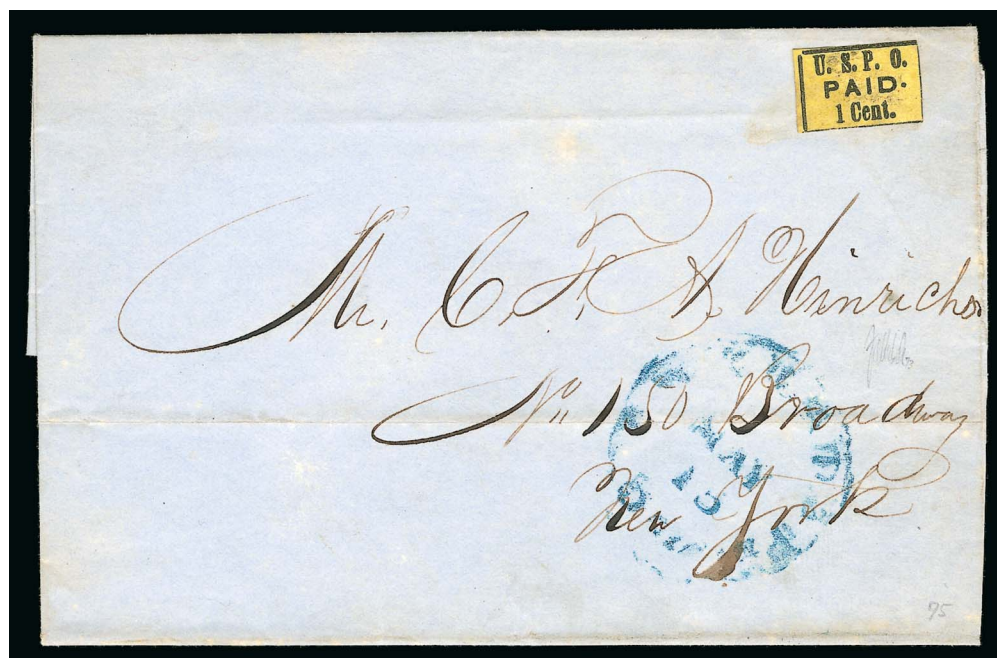 U. S. P. O.
PAID.
1 Cent.
Mr. C. F. A. Hinrichs
No 150 Broadway
New York
MAY
15
75